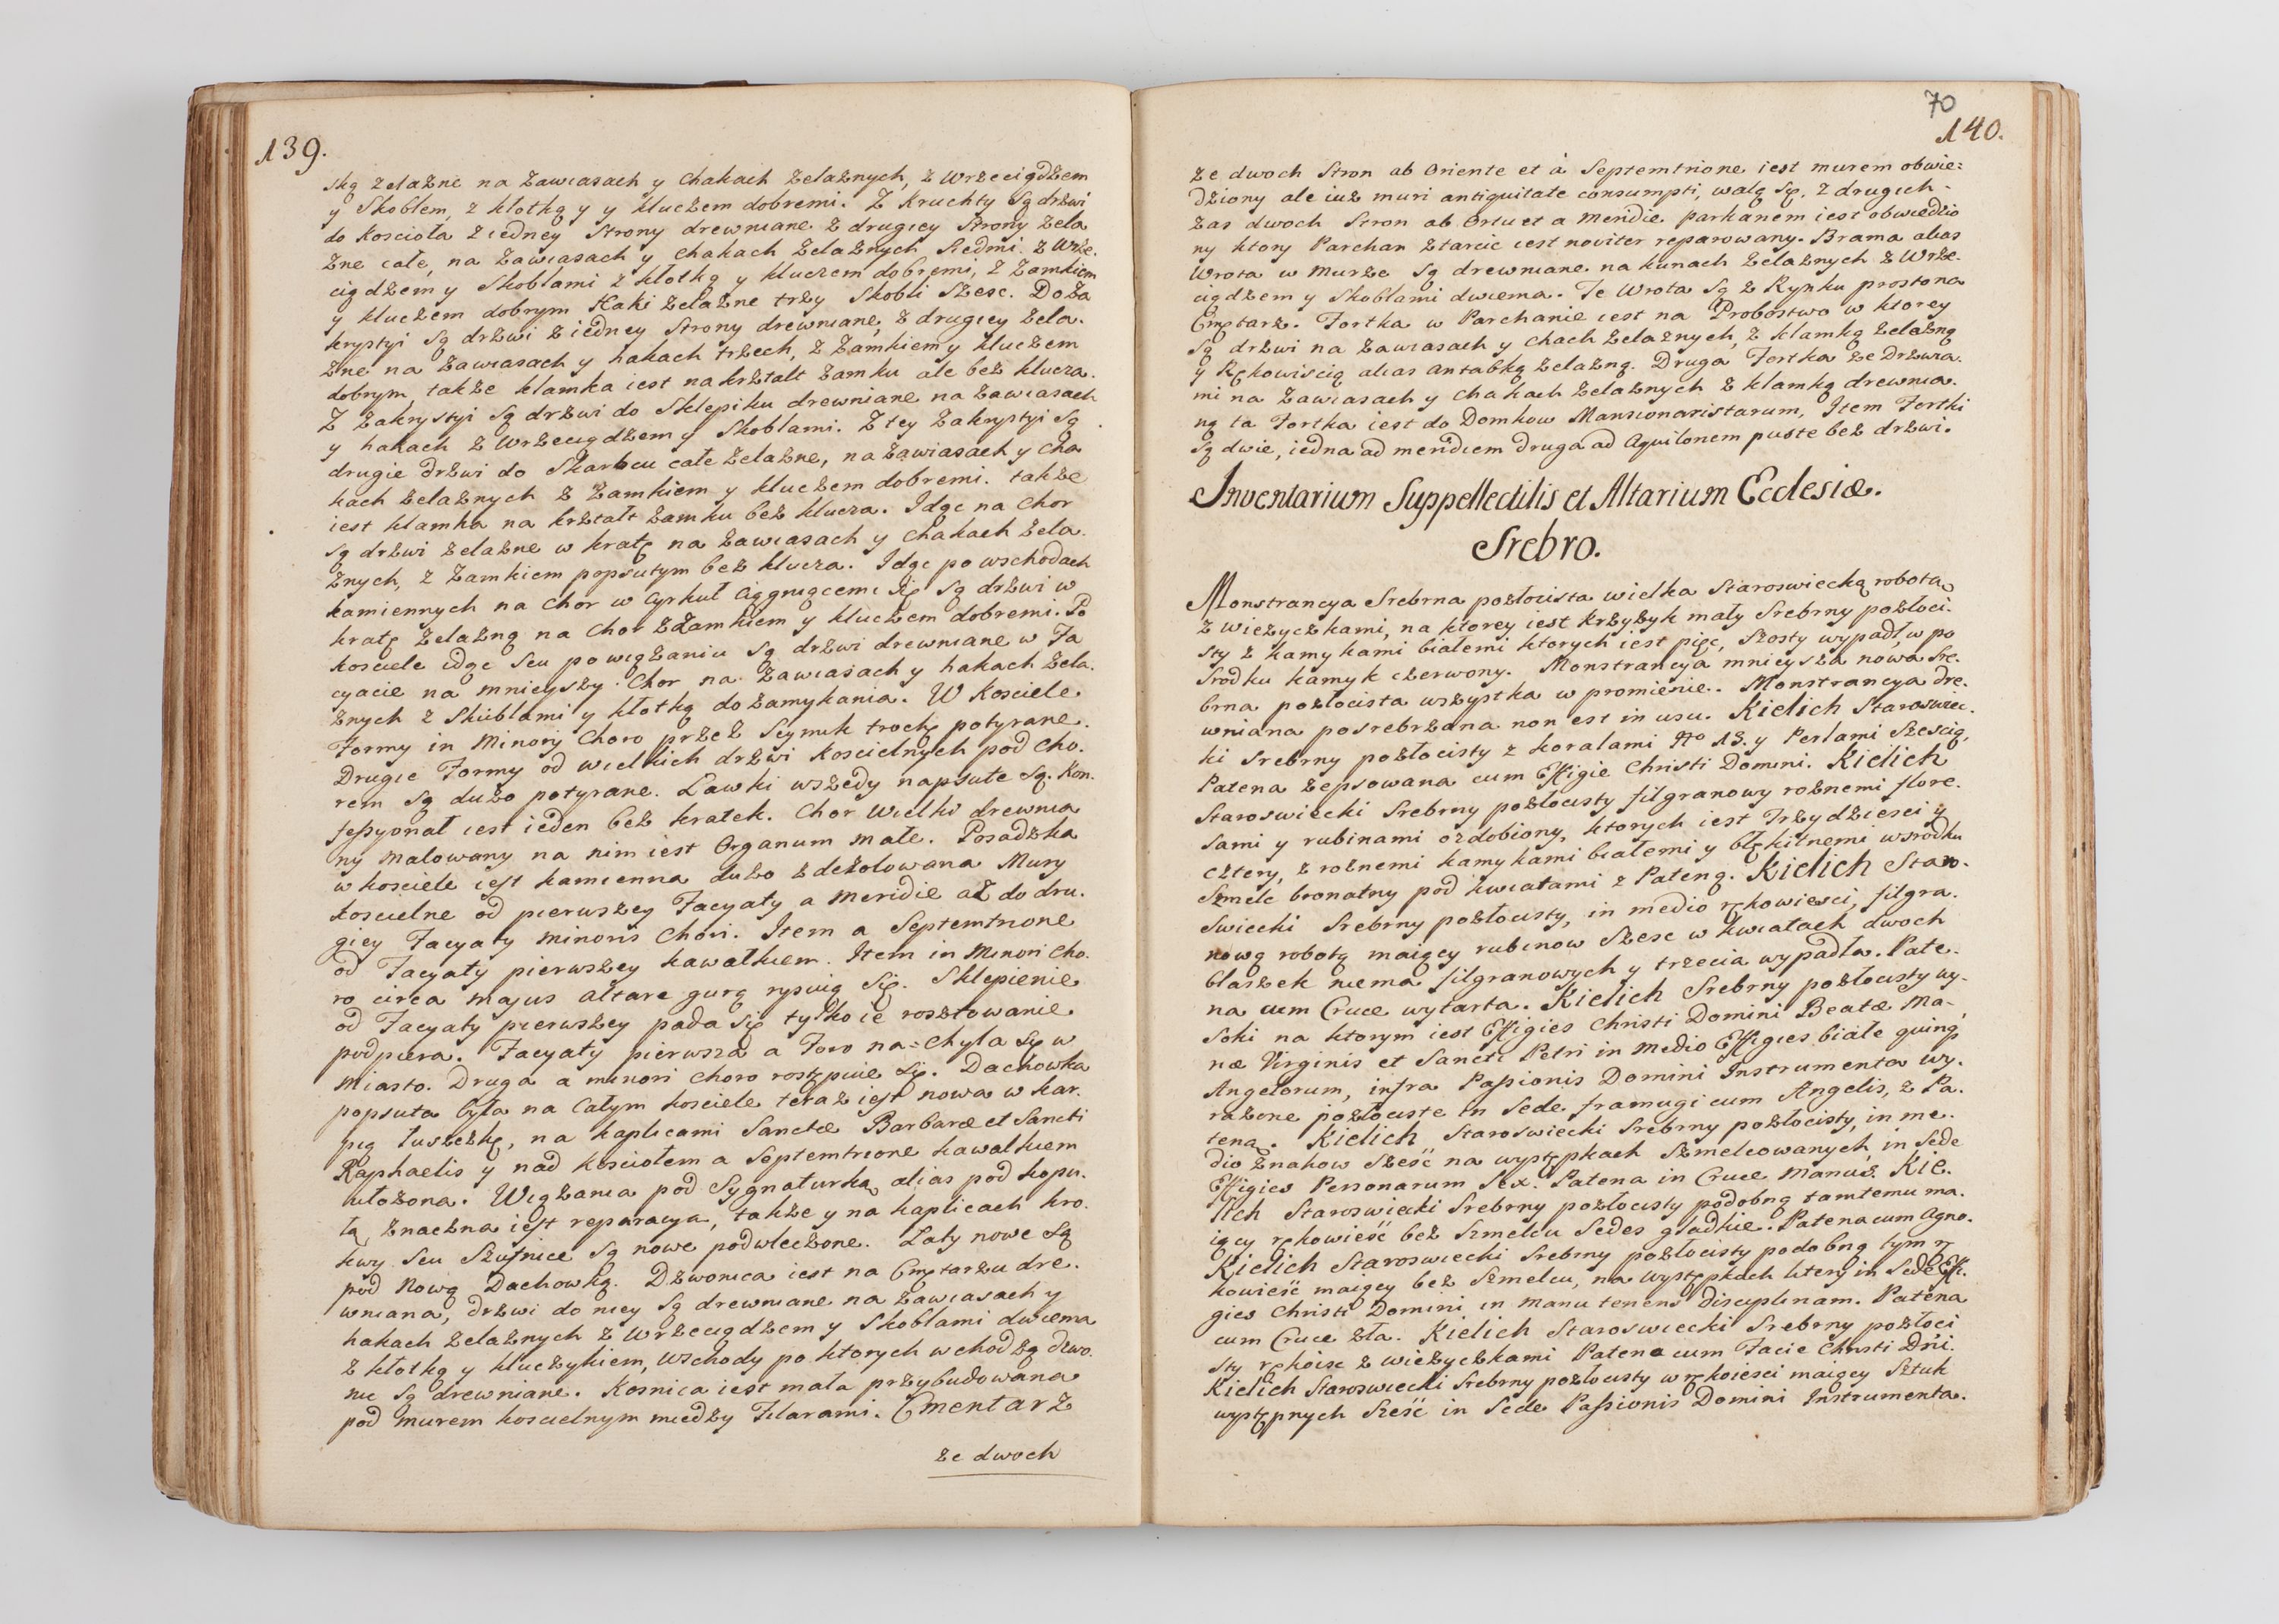 139.
ską zelazne na Zawiasach y Chakach Zelaznych, z Wrzeciądzem
y Skoblem, z kłotką y y kluczem dobremi. Z Kruchty są drzwi
do Kosciola z iedney Strony drewniane z drugiey Strony Zela
zne całe, na Zawiasach y Chakach Zelaznych Siedmi. z Wrze.
ciądzem y Skoblami z kłotką y kluczem dobremi, z Zamkiem
y kluczem dobrym Haki Zelazne trzy Skobli Szesc. Do Za
krystyi są drzwi z iedney Strony drewniane, z drugiey Zela.
zne na Zawiasach y hakach trzech, z Zamkiem y kluczem
dobrym, także klamka iest na ksztalt Zamku ale bez klucza.
Z Zakrystyi są drzwi do Sklepiku drewniane na Zawiasach
y hakach z Wrzeciądzem y Skoblami. Z tey Zakrystyi są
drugie drzwi do Skarbcu całe Zelazne, na Zawiasach y Cha
kach Zelaznych z Zamkiem y kluczem dobremi. także
iest klamka na ksztalt Zamku bez klucza. Idąc na Chor
są drzwi Zelazne w kratę na Zawiasach y Chakach Zela.
znych, z Zamkiem popsutym bez klucza. Idąc po wschodach
kamiennych na Chor w Cyrkuł Ciągnącemi się są drzwi w
kratę Zelazną na Chor z Zamkiem y kluczem dobremi. Po
kosciele idąc seu po wiązaniu są drzwi drewniane w Fa
cyacie na mnieyszy Chor na Zawiasach y hakach Zela.
znych z Skublami y kłotką do zamykania. W Kosciele
Formy in Minori Choro przez Seymik trochę potyrane.
Drugie Formy od wielkich drzwi Koscielnych pod Cho.
rem są dużo potyrane. Ławki wszędy napsute są. Kon.
fessyonał iest ieden bez kratek. Chor Wielki drewnia
ny malowany na nim iest Organum małe. Posadzka
w kosciele iest kamienna dużo zdezolowana Mury
koscielne od pierwszey Facyaty a meridie aż do dru.
giey Facyaty minoris Chori. Item a Septemtrione
od Facyaty pierwszey kawałkiem. Item in Minori Cho.
ro circa majus altare gurą rysuią się. Sklepienie
od Facyaty pierwszey pada się tylko ie rosztowanie
podpiera. Facyaty pierwsza a Foro na=chyla się w
miasto. Druga a minori Choro rostępuie się. Dachowka
popsuta była na Całym kosciele teraz iest nowa w kar.
pią łuszczkę, na kaplicami Sanctæ Barbaræ et Sancti
Raphaelis y nad Kosciołem a Septemtrione kawałkiem
ułożona. Wiązania pod Sygnaturką alias pod kopu.
łą, znaczna iest reparacya, także y na kaplicach kro.
kwy seu Szufnice są nowe podwleczone. Łaty nowe są
pod Nową Dachowką. Dzwonica iest na Cmętarzu dre.
wniana, drzwi do niey są drewniane na Zawiasach y
hakach Zelaznych z Wrzeciądzem y Skoblami dwiema
z kłotką y kluczykiem, Wschody po ktorych wchodzą dzwo.
nic są drewniane. Kosnica iest mała przybudowana
pod murem koscielnym między Filarami. Cmentarz
ze dwoch
70
140.
ze dwoch Stron ab Oriente et à Septemtrione iest murem obwie:
dziony ale iuż muri antiquitate consumpti, walą się. z drugich
zas dwoch Stron ab Ortu et a meridie parkanem iest obwiedzio
ny ktory Parchan ztarcic iest noviter reparowany. Brama alias
Wrota w murze są drewniane na kunach Zelaznych z Wrze.
ciądzem y Skoblami dwiema. Te Wrota są z Rynku prosto na
Cmętarz. Fortka w Parchanie iest na Probostwo w ktorey
są drzwi na Zawiasach y Chach Zelaznych, z klamką Zelazną
y Rękowiscią alias antabką Zelazną. Druga Fortka ze Drzwia.
mi na Zawiasach y Chakach Zelaznych z klamką drewnia.
ną ta Fortka iest do Domkow Mansionaristarum, Item Fortki
są dwie, iedna ad meridiem druga ad Aquilonem puste bez drzwi.
Inventarium Suppellectilis et Altarium Ecclesiæ.
Srebro.
Monstrancya Srebrna pozłocista wielka Staroswiecką robotą
z wieżyczkami, na ktorey iest krzyżyk mały Srebrny pozłoci.
sty z kamykami białemi ktorych iest pięc, Szosty wypadł, w po
srodku kamyk czerwony. Monstrancya mnieysza nowa Sre.
brna pozłocista wszystka w promienie. Monstrancya dre.
wniana posrebrzana non est in usu. Kielich Staroswiec.
ki Srebrny pozłocisty z koralami No 13. y Perlami Szescią,
Patena zepsowana cum Effigie Christi Domini. Kielich
Staroswiecki Srebrny pozłocisty filgranowy roznemi flore.
sami y rubinami ozdobiony, ktorych iest Trzydziesci y
cztery, z roznemi kamykami białemi y błękitnemi wsrodku
Szmelc bronatny pod kwiatami z Pateną. Kielich Staro.
swiecki Srebrny pozłocisty, in medio rękowiesci, filgra.
nową robotą maiący rubinow Szesc w kwiatach dwoch
blaszek niema filgranowych y trzecia wypadła. Pate.
na cum Cruce wytarta. Kielich Srebrny pozłocisty wy-
soki na ktorym iest Effigies Christi Domini Beatæ Ma-
riæ Virginis et Sancti Petri in medio Effigies białe quinq
Angelorum, infra Passionis Domini Instrumenta wy.
rażone pozłociste in Sede framugi cum Angelis, z Pa.
teną. Kielich Staroswiecki Srebrny pozłocisty, in me.
dio Znakow Sześć na występkach Szmelcowanych, in Sede
Effigies Personarum Sex. Patena in Cruce Manus. Kie.
lich Staroswiecki Srebrny pozłocisty podobną tamtemu ma.
iący rękowieść bez Szmelcu Sedes gładkie. Patena cum Agno.
Kielich Staroswiecki Srebrny pozłocisty podobną tym rę
kowieść maiący bez Szmelcu, na występkach litery in Sede Effi.
gies Christi Domini in manu tenens disciplinam. Patena
cum Cruce zła. Kielich Staroswiecki Srebrny pozłoci
sty rękoisc z wieżyczkami Patena cum Facie Christi Dńi.
Kielich Staroswiecki Srebrny pozłocisty w rękoiesci maiący Sztuk
występnych Sześć in Sede Passionis Domini Instrumenta.